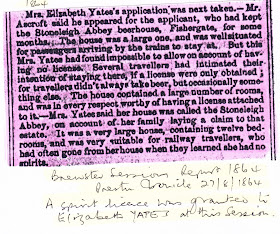 1864
Mrs. Elizabeth Yates's application was next taken.— Mr.
Ascroft said he appeared for the applicant, who had kept
the Stoneleigh Abbey beerhouse, Fishergate, for some
months. The house was a large one, and was well situated
for passengers arriving by the trains to stay at. But this
Mrs. Yates had found impossible to allow on account of hav-
ing no licence. Several travellers had intimated their
intention of staying there, if a license were only obtained;
for travellers didn't always take beer, but occasionally some-
thing else. The house contained a large number of rooms,
and was in every respect worthy of having a license attached
to it.—Mrs. Yates said her house was called the Stoneleigh
Abbey, on account of her family laying a claim to that
estate. It was a very large house, containing twelve bed-
rooms, and was very suitable for railway travellers, who
had often gone from her house when they learned she had no
spirits.
Brewster Session Report 1864
Preston Chronicle 27/8/1864
A spirit licence was granted to
Elizabeth YATES at this Session